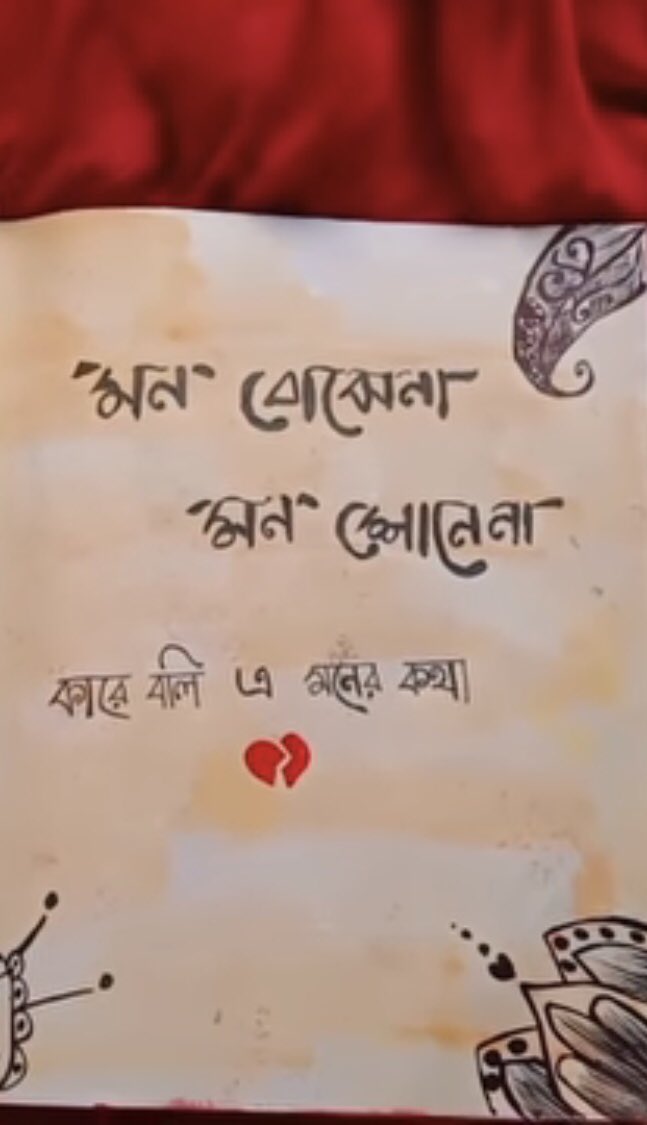 "মন" বোঝেনা
"মন" শোনেনা
কারে বলি এ মনের কথা